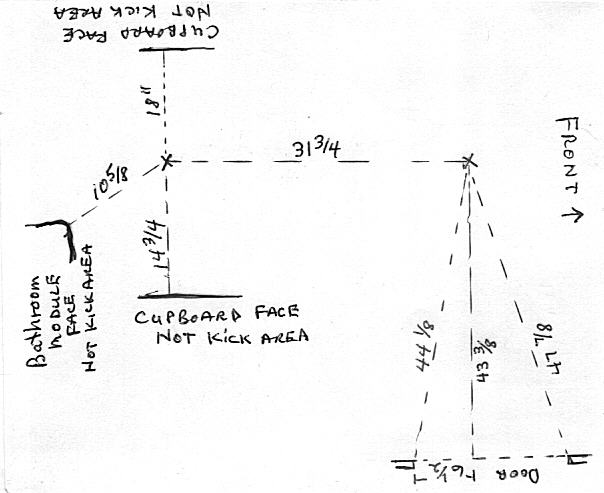 CUPBOARD FACE
NOT KICK AREA
18"
31 3/4
FRONT ↑
10 5/8
14 3/4
Bathroom
MODULE
FACE
NOT KICK AREA
CUPBOARD FACE
NOT KICK AREA
44 1/8
43 3/8
47 1/8
6 1/2
DOOR